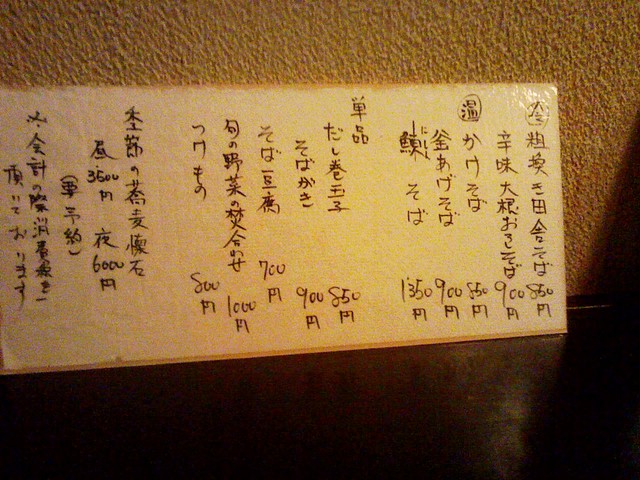 冷 粗挽き田舎そば 850円
辛味大根おろしそば 900円
温 かけそば 850円
釜あげそば 900円
鰊そば 1350円
にしん
単品
だし巻玉子 850円
そばがき 900円
そば豆腐 700円
旬の野菜の焚合わせ 1000円
つけもの 800円
季節の蕎麦懐石
昼 3500円 夜 6000円
(要予約)
※会計の際消費税を
頂いております